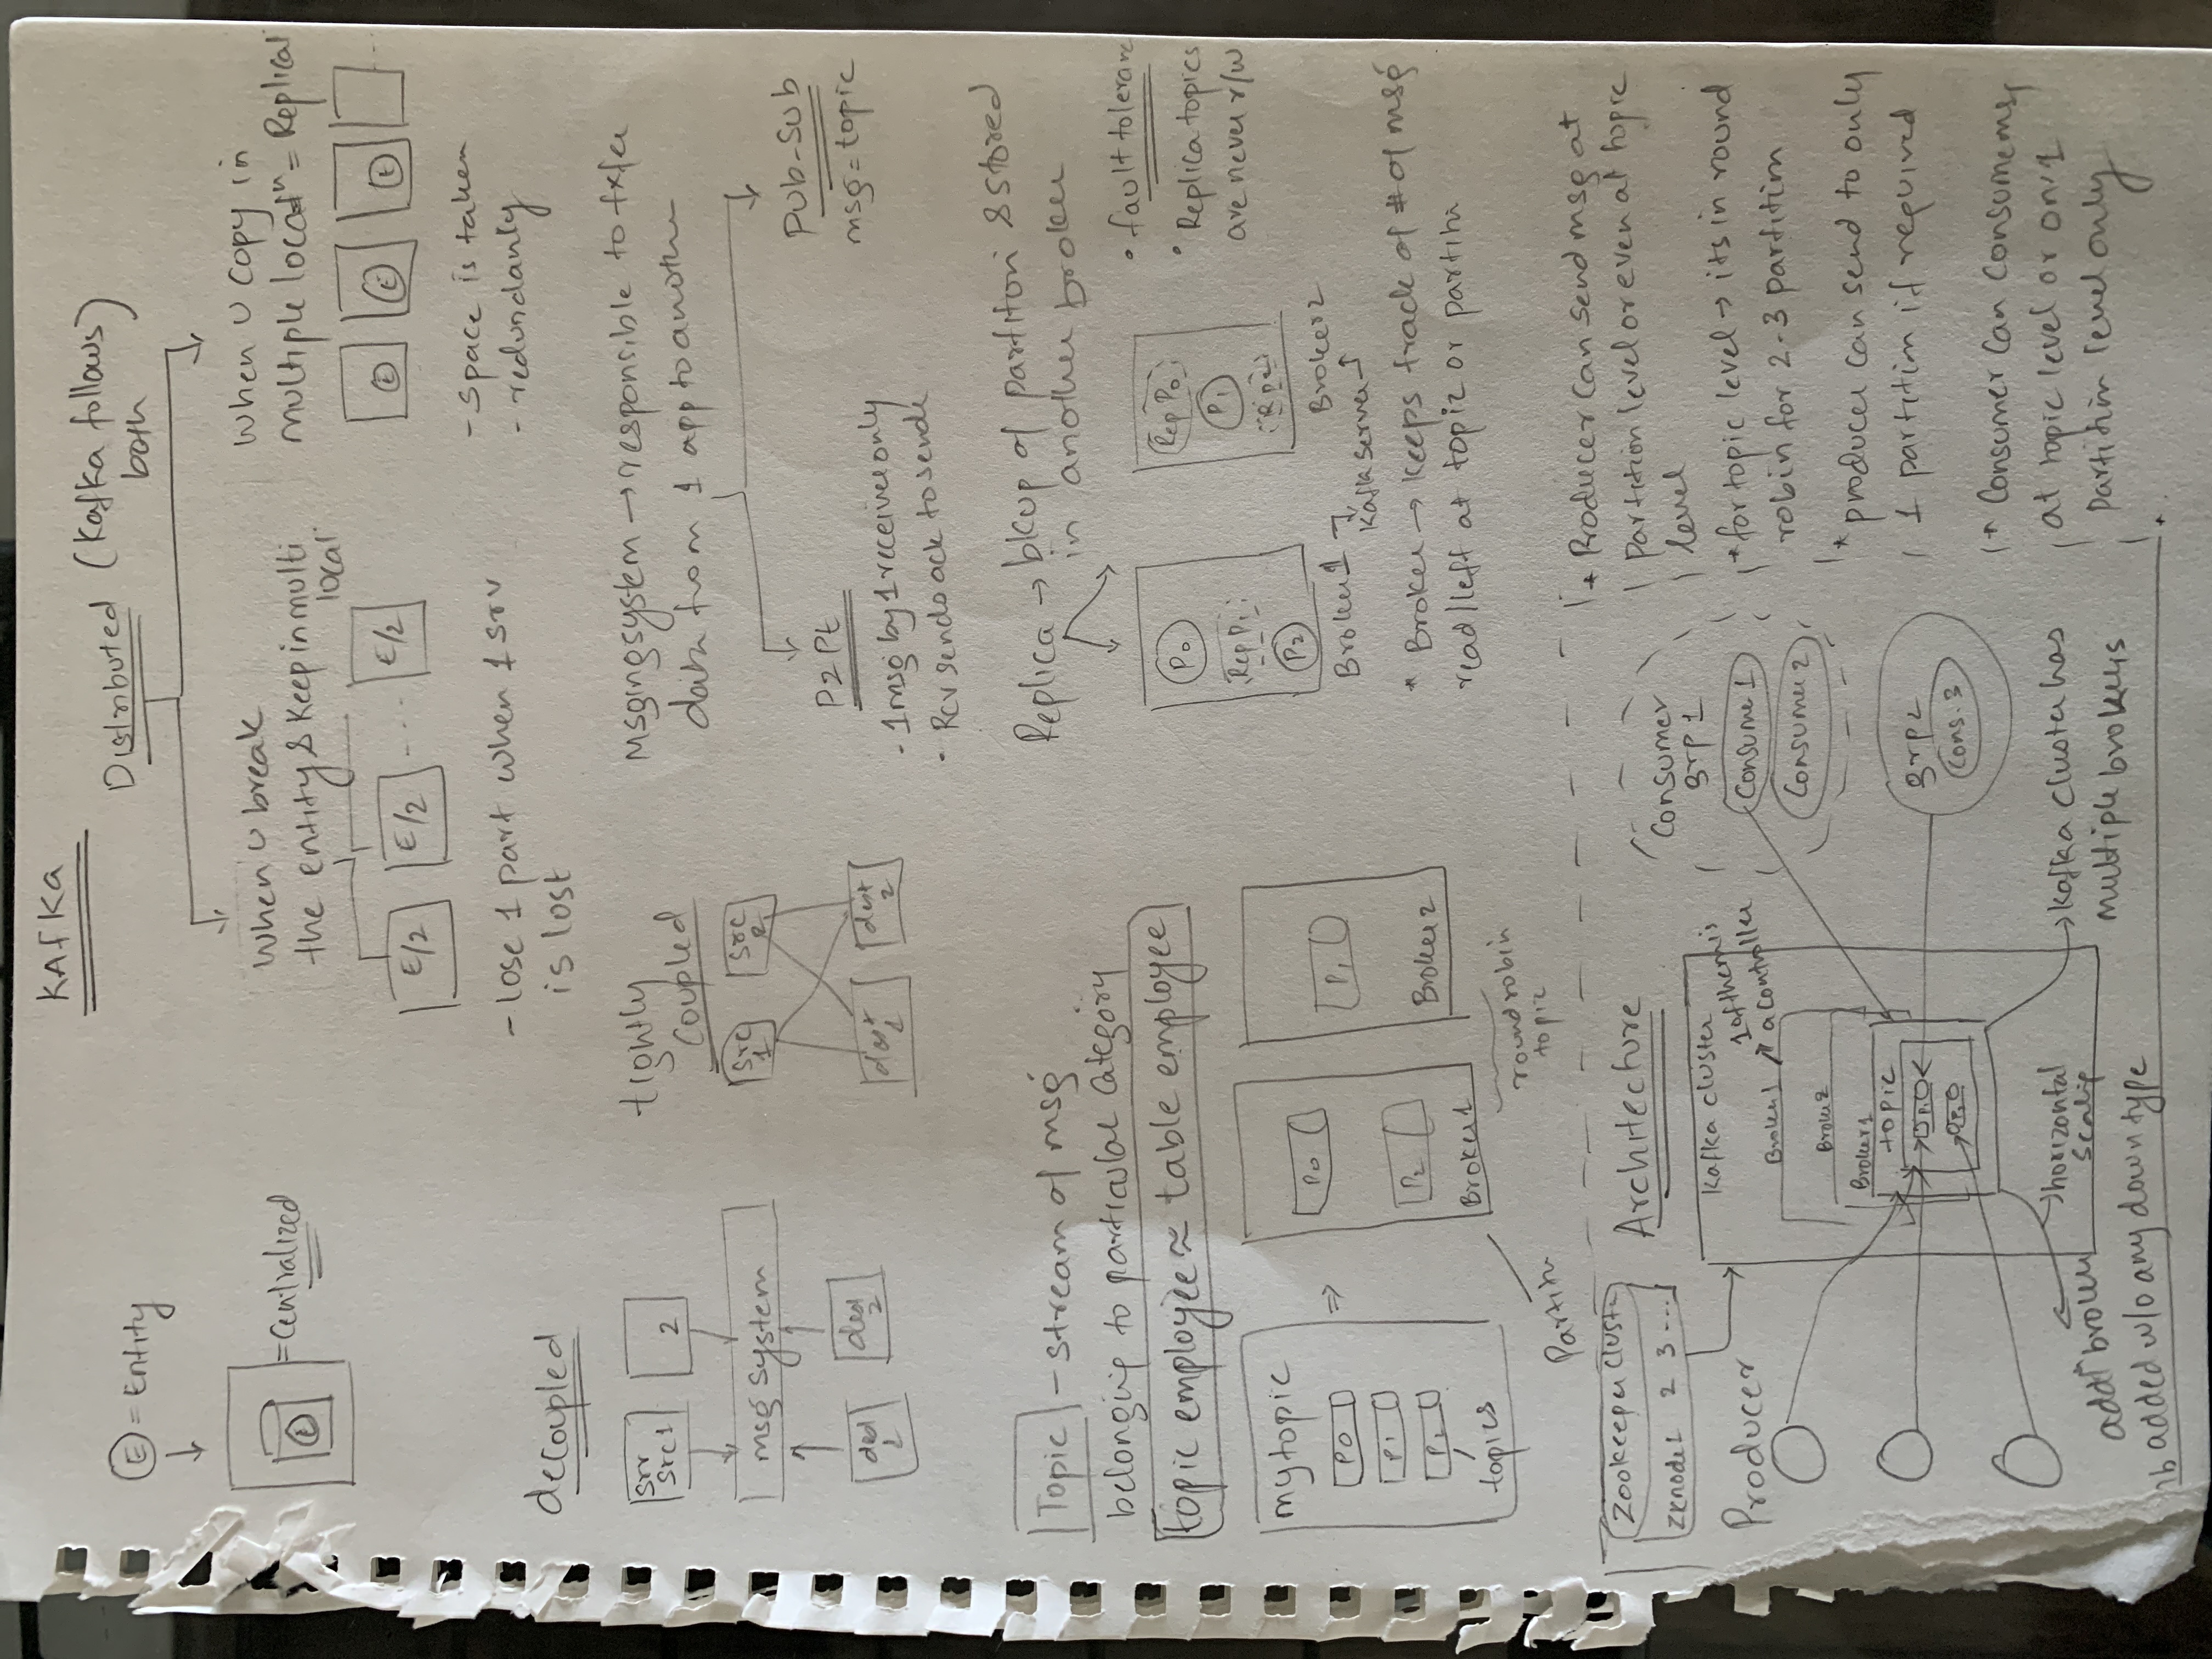 KAFKA
E = Entity
E
= Centralized
Distributed (Kafka follows
both)
When U break
the entity & Keep in multi
local
E/2 E/2 .... E/2
- lose 1 part when 1 srv
is lost
When U Copy in
multiple locatn = Replicat
E E E ...
- Space is taken
- redundantly
decoupled
Srv
Src 1
2
msg system
dest
1
dest
2
tightly
Coupled
Src
1
Src
2
dest
1
dest
2
Msging system → responsible to txfer
data from 1 app to another
P2Pt
- 1 msg by 1 receiver only
- Rcv sends ack to sende
Pub-Sub
msg = topic
Topic - stream of msg
belonging to particular Category
topic employee ≈ table employee
mytopic
P0
P1
P2
topics
⇒
P0
P2
Broker1
P1
Broker2
round robin
topic
Partitn
Replica → bkup of partition & stored
in another broker
P0
Rep P1
P2
Broker1
Rep P0
P1
Rp2
Broker2
Kafka Server
• fault toleran
• Replica topics
are never r/w
* Broker → Keeps track of # of msg
read/left at topic or partitn
Zookeeper Cluste
ZKnode1 2 3 ...
Architecture
Producer
Kafka cluster
1 of them is
a controller
Broker1
Broker2
Broker1
topic
Consumer
grp1
Consumer 1
Consumer 2
grp2
Cons. 3
horizontal
Scaling
addn broker
added w/o any down type
Kafka Cluster has
multiple brokers
* Producer Can send msg at
partition level or even at topic
level
* for topic level → its in round
robin for 2-3 partition
* producer can send to only
1 partition if required
* Consumer Can Consume msg
at topic level or on 1
Partition level only